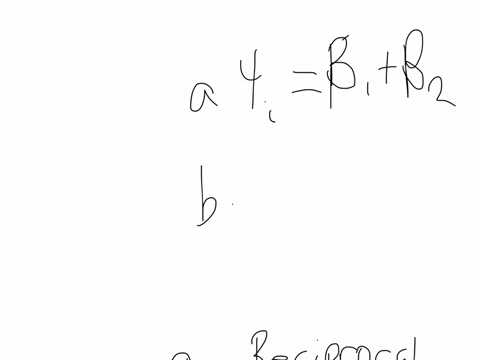 a Yᵢ = β₁ + β₂
b.
a Reciprocal